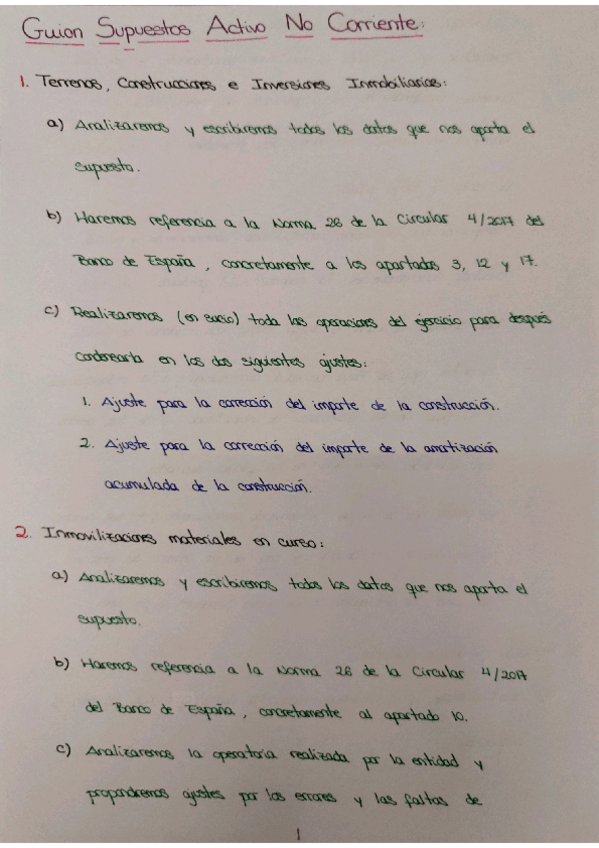 Guion Supuestos Activo No Corriente:
1. Terrenos, Construcciones e Inversiones Inmobiliarias:
a) Analizaremos y escribiremos todos los datos que nos aporta el
supuesto.
b) Haremos referencia a la Norma 26 de la Circular 4/2017 del
Banco de España, concretamente a los apartados 3, 12 y 17.
c) Realizaremos (en sucio) toda las operaciones del ejercicio para después
condensarla en los dos siguientes ajustes:
1. Ajuste para la corrección del importe de la construcción.
2. Ajuste para la corrección del importe de la amortización
acumulada de la construcción.
2. Inmovilizaciones materiales en curso:
a) Analizaremos y escribiremos todos los datos que nos aporta el
supuesto.
b) Haremos referencia a la Norma 26 de la Circular 4/2017
del Banco de España, concretamente al apartado 10.
c) Analizaremos la operatoria realizada por la entidad y
propondremos ajustes por los errores y las faltas de
1